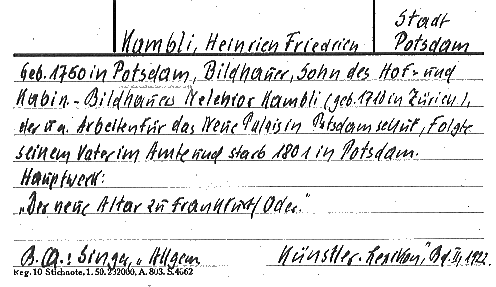 Kambli, Heinrich Friedrich
Stadt
Potsdam
Geb. 1750 in Potsdam, Bildhauer, Sohn des Hof- und
Kabin.- Bildhauers Melchior Kambli (geb. 1710 in Zürich),
der u.a. Arbeiten für das Neue Palais in Potsdam schuf, folgte
seinem Vater im Amte und starb 1801 in Potsdam.
Hauptwerk:
„Der neue Altar zu Frankfurt/Oder."
B.Qu.: Singer, „Allgem. Künstler-Lexikon," Bd. II, 1922.
Reg. 10 Stichnote, 1. 50. 232000, A. 803. S. 4662